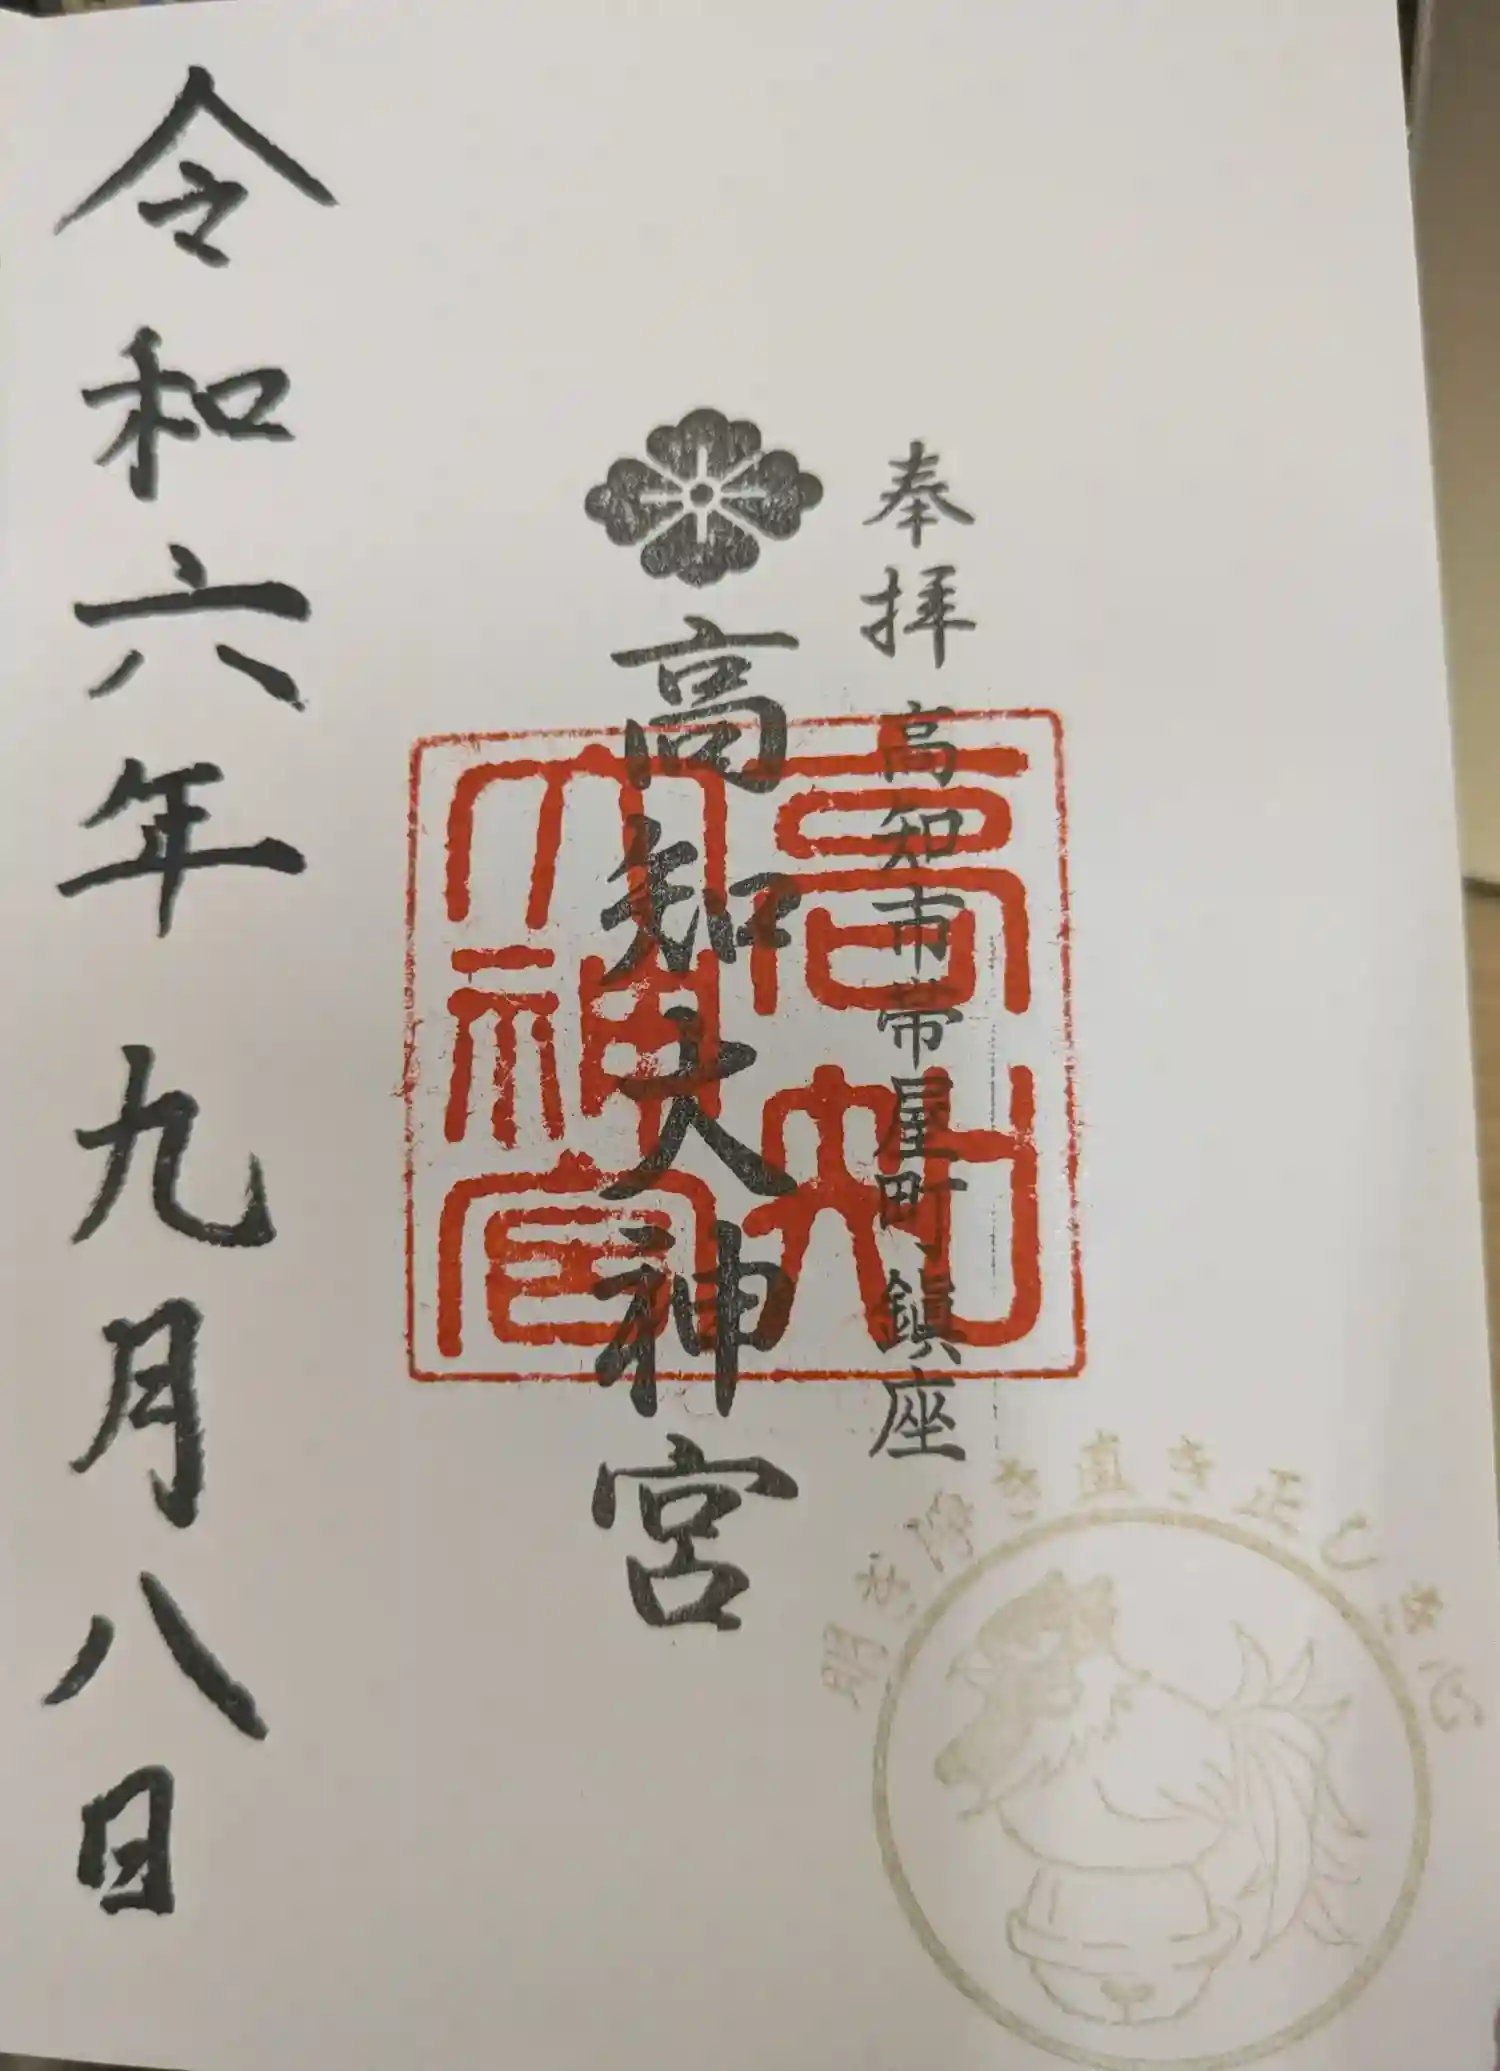 奉拝
高知市帯屋町鎮座
高知大神宮
高知
大神宮
令和六年九月八日
明き浄き直き正しき